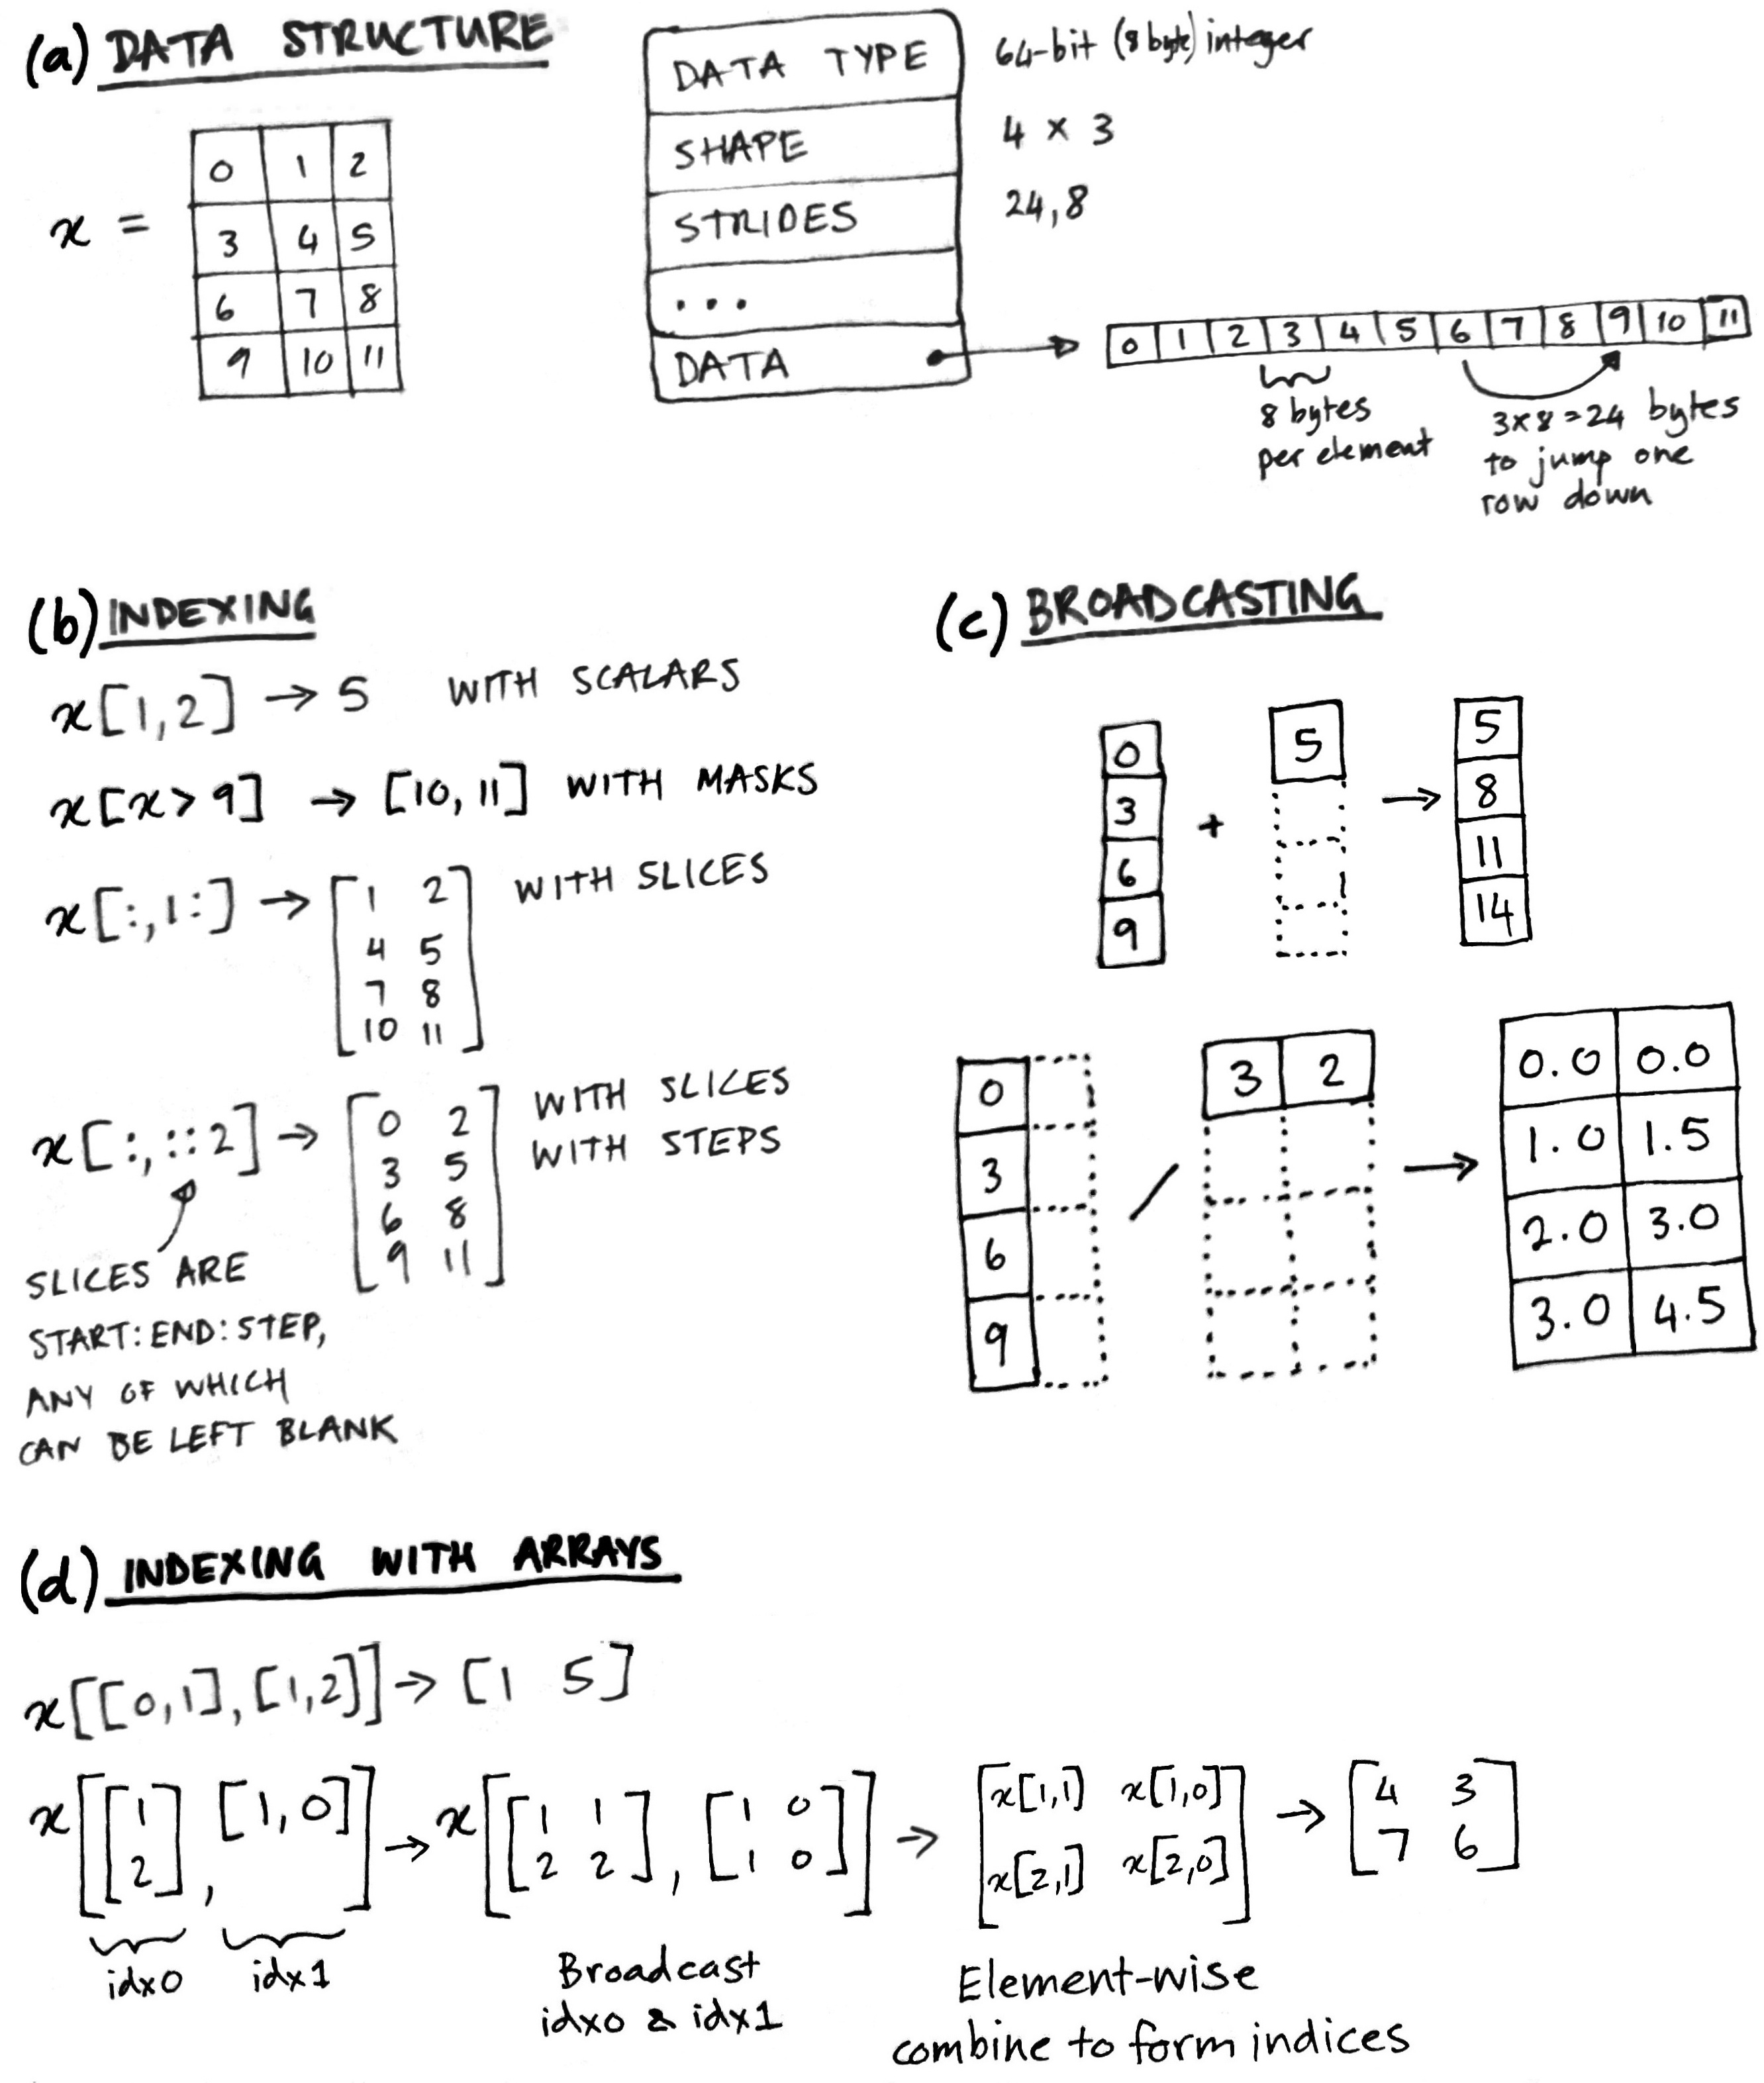 (a) DATA STRUCTURE
x =
0 1 2
3 4 5
6 7 8
9 10 11
DATA TYPE 64-bit (8 byte) integer
SHAPE 4 x 3
STRIDES 24,8
...
DATA
0 1 2 3 4 5 6 7 8 9 10 11
8 bytes
per element
3x8=24 bytes
to jump one
row down
(b) INDEXING
x[1,2] → 5 WITH SCALARS
x[x > 9] → [10, 11] WITH MASKS
x[:,1:] → WITH SLICES
1 2
4 5
7 8
10 11
x[:,::2] → WITH SLICES
WITH STEPS
0 2
3 5
6 8
9 11
SLICES ARE
START:END:STEP,
ANY OF WHICH
CAN BE LEFT BLANK
(c) BROADCASTING
0 + 5 → 5
3 8
6 11
9 14
0 / 3 2 → 0.0 0.0
3 1.0 1.5
6 2.0 3.0
9 3.0 4.5
(d) INDEXING WITH ARRAYS
x[[0,1],[1,2]] → [1 5]
x[[1 2], [1,0]] → x[[1 1 2 2], [1 0 1 0]] → [x[1,1] x[1,0] x[2,1] x[2,0]] → [4 3 7 6]
idx0 idx1
Broadcast
idx0 & idx1
Element-wise
combine to form indices